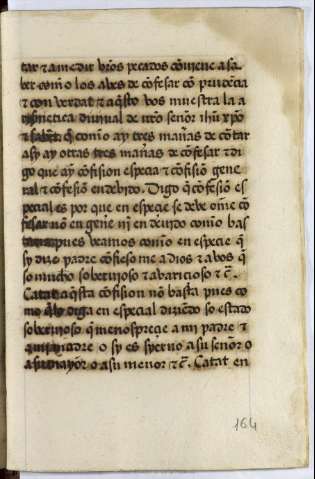 tar τ a medir vr̃os pecados cõviene a sa
ber com̃o los aves de cõfesar cõ prudẽcia
τ con verdat τ aq̃sto vos muestra la a
rismetica divinal de nr̃o señor ihũ xp̃o
τ sabed q̃ com̃o ay tres mañas de cõtar
asy ay otras tres mañas de cõfesar τ di
go que ay cõfision especia τ cõfisiõ gene
ral τ cõfesiõ en devido. Digo q̃ cõfesiõ es
pecial es por que en especie se deve om̃e cõ
fesar nõ en genẽ nj̃ en devido com̃o bas
pues veamos com̃o en especie q̃
sy dizo padre cõfieso me a dios τ a vos q̃
so mucho sobervioso τ avaricioso τ c̃.
Catat aq̃sta cõfision nõ basta pues co
mo q̃ lo diga en especial diziẽdo so estado
sobervioso q̃ menosprecie a mi padre τ
a mi madre o sy es syervo a su señor o
a su mayor o a su menor τ c̃. Catat en
164